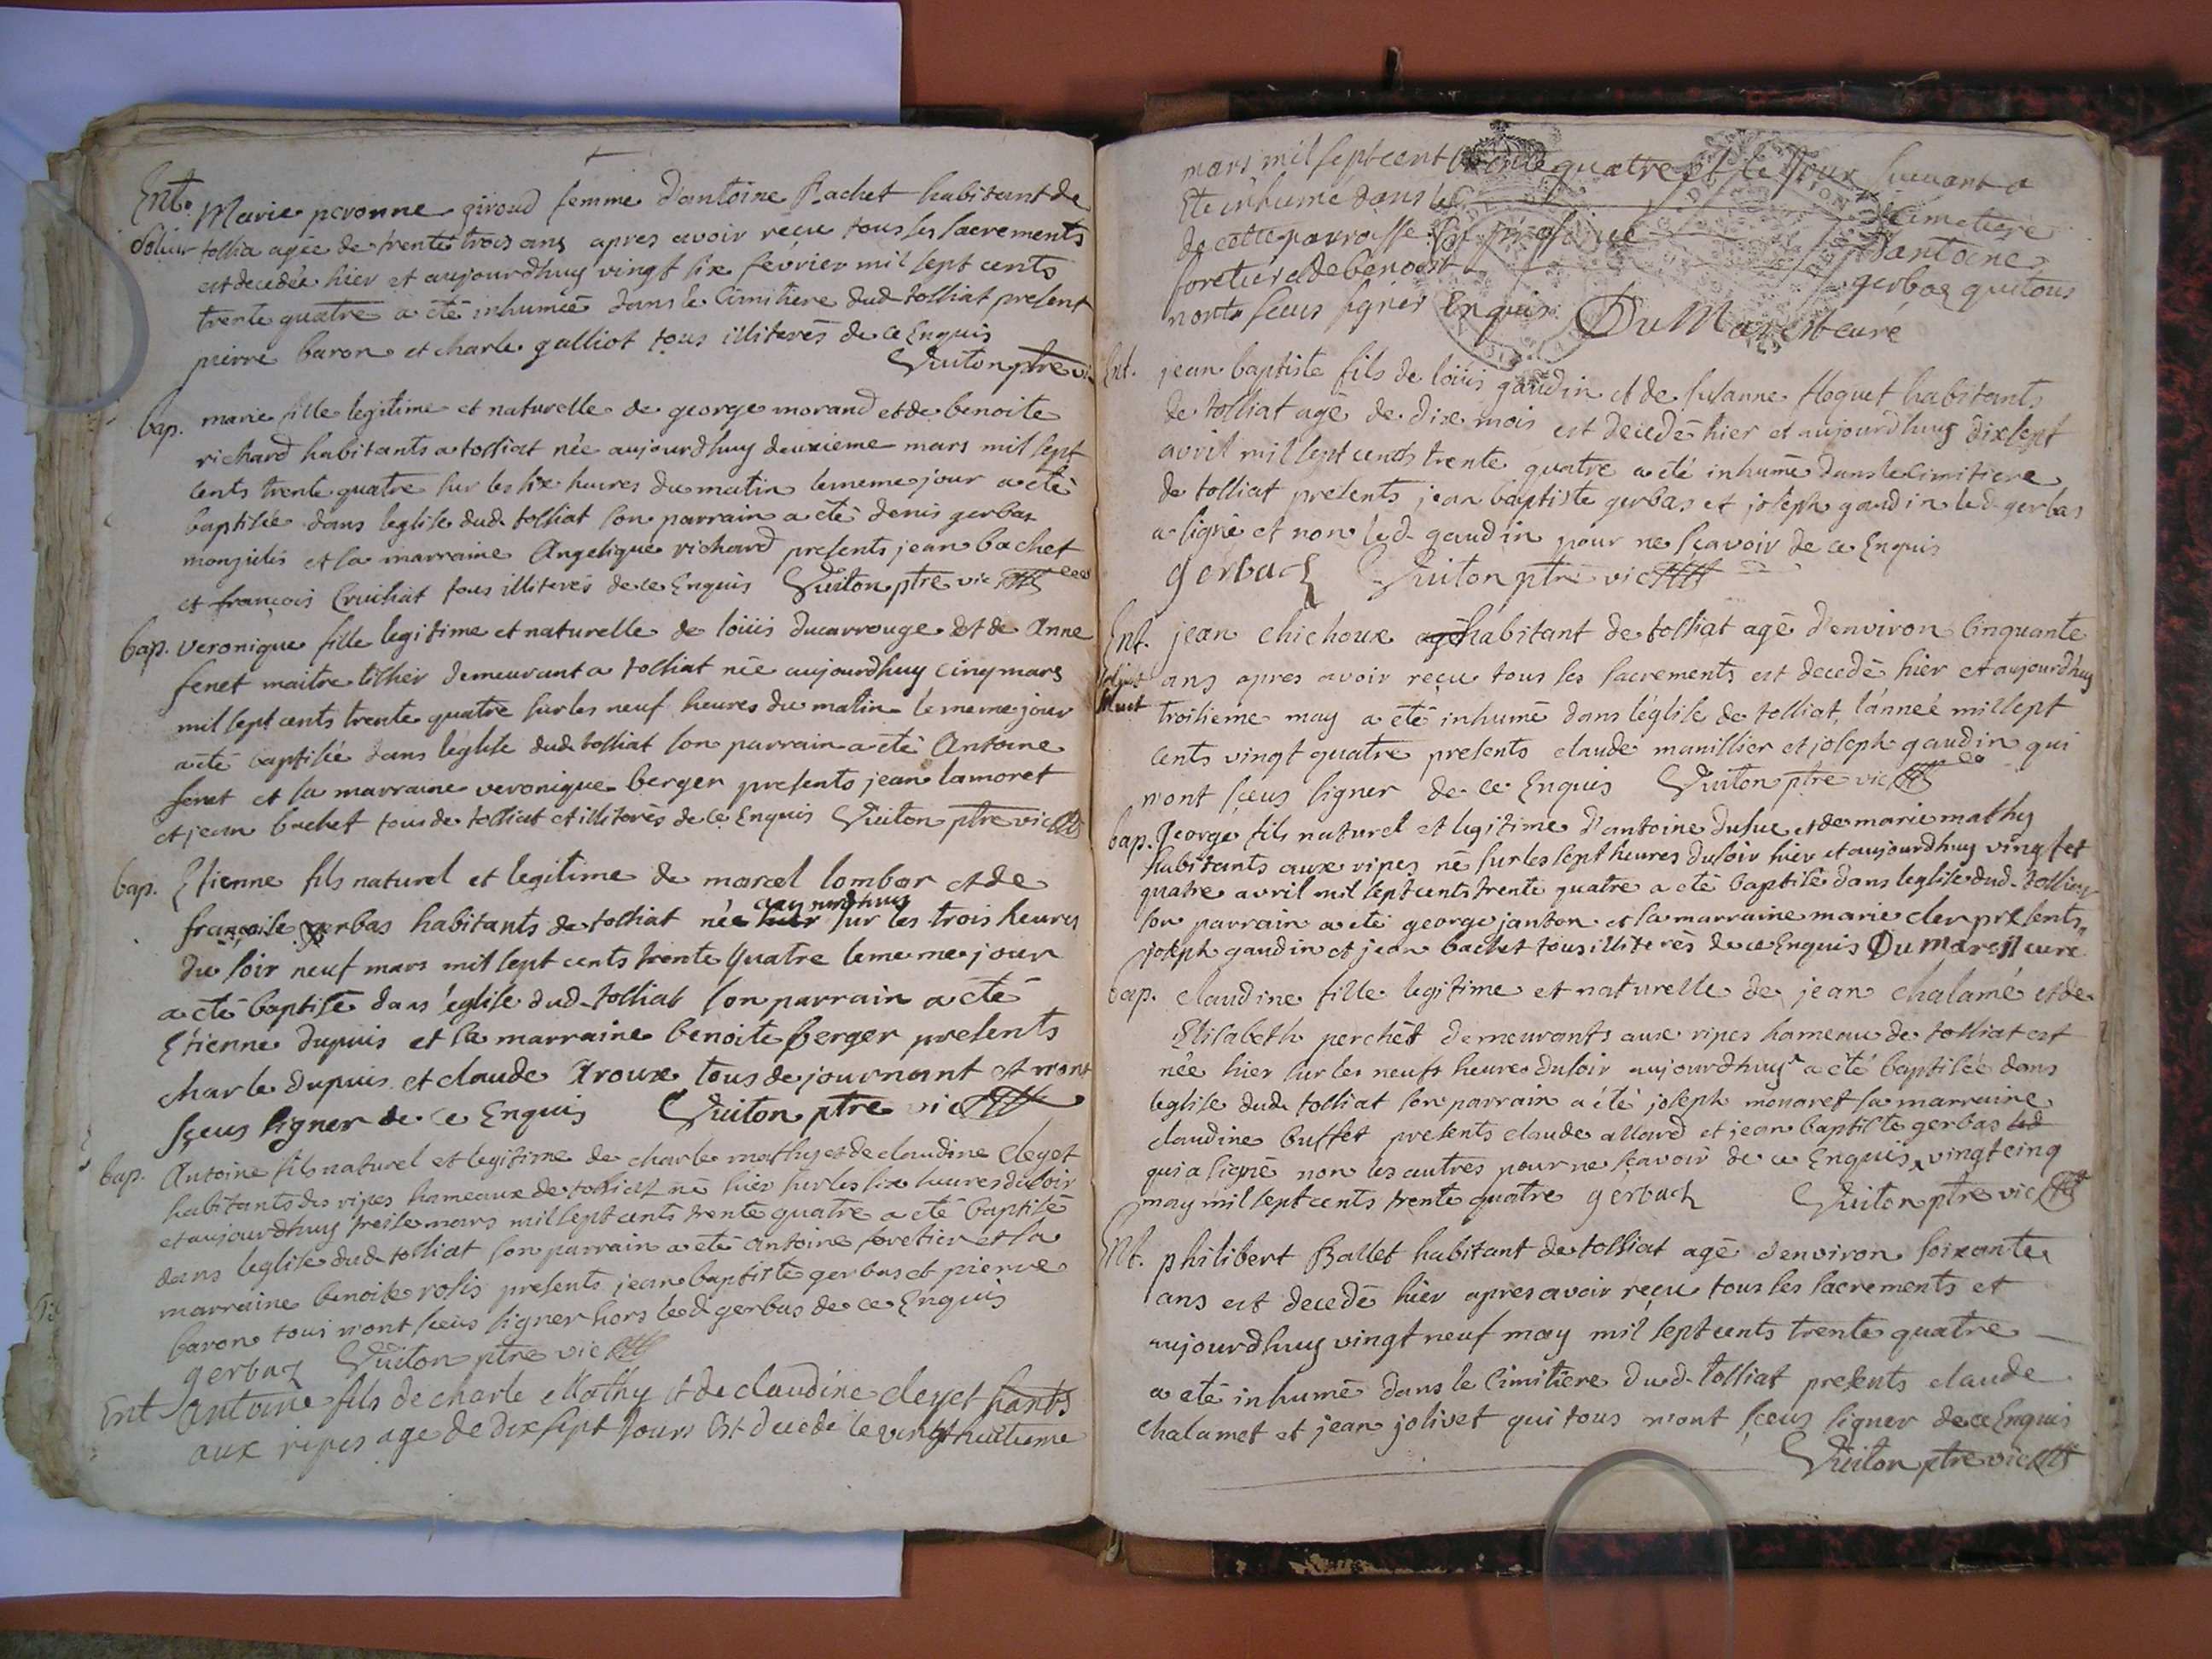 Ent. Marie peronne giroud femme d'antoine Bachet habitant de
tossia agée de trente trois ans apres avoir reçu tous les sacrements
est decedée hier et aujourdhuy vingt six fevrier mil sept cents
trente quatre a été inhumée dans le Cimitiere dud tossiat present
pierre baron et charle galliot tous illiterés de ce Enquis
Vuiton ptre vic
bap. marie fille legitime et naturelle de george morand et de benoite
richard habitants a tossiat née aujourdhuy deuxieme mars mil sept
cents trente quatre sur les six heures du matin le meme jour a été
baptisée dans leglise dud tossiat son parrain a été denis gerbas
et sa marraine Angelique richard presents jean bachet
et françois Cruichat tous illiterés de ce Enquis Vuiton ptre vic
bap. veronique fille legitime et naturelle de loüis ducarrouge et de Anne
fenet maitre tissier demeurant a tossiat née aujourdhuy cinq mars
mil sept cents trente quatre sur les neuf heures du matin le meme jour
a été baptisée dans l'église dud tossiat son parrain a été Antoine
fenet et sa marraine veronique berger presents jean lamoret
et jean bachet tous de tossiat et illiterés de ce Enquis Vuiton ptre vic
bap. Etienne fils naturel et legitime de marcel lombar et de
françoise gerbas habitants de tossiat née hier aujourdhuy sur les trois heures
du soir neuf mars mil sept cents trente quatre le meme jour
a été baptisé dans l'eglise dud tossiat son parrain a été
Etienne dupuis et la marraine benoite berger presents
charle dupuis et claude Aroux tous de journant et n'ont
sçeus signer de ce Enquis Vuiton ptre vic
bap. Antoine fils naturel et legitime de charle mathy et de claudine cleyet
habitants des ripes hameaux de tossiat né hier sur les six heures du soir
et aujourdhuy treise mars mil sept cents trente quatre a été baptisé
dans leglise dud tossiat son parrain a été antoine foretier et la
marraine benoite rosis presents jean baptiste gerbas et pierre
baron tous n'ont sçeus signer hors led gerbas de ce Enquis
gerbaz Vuiton ptre vic
Ent antoine fils de charle Mathy et de claudine cleyet hants
aux ripes agé de dix sept jours Est decedé le vingt huitieme
mars mil sept cent trente quatre et le jour suivant a
Eté inhumé dans le cimetiere
de cette parroisse En presence d'antoine
foretier et de benoist gerbaz qui tous
n'ont sceus signer Enquis DuMarest curé
Ent. jean baptiste fils de loüis gaudin et de susanne floquet habitants
de tossiat agé de dix mois est decedé hier et aujourdhuy dixsept
avril mil sept cents trente quatre a été inhumé dans le cimitiere
de tossiat presents jean baptiste gerbas et joseph gaudin led gerbas
a signé et non led gaudin pour ne sçavoir de ce Enquis
gerbaz Vuiton ptre vic
Ent. jean chichoux agé habitant de tossiat agé d'environ cinquante
ans apres avoir reçu tous les sacrements est decedé hier et aujourdhuy
troisieme may a été inhumé dans l'église de tossiat l'année mil sept
cents vingt quatre presents claude manissier et joseph gaudin qui
n'ont sçeus signer de ce Enquis Vuiton ptre vic
bap. George fils naturel et legitime d'antoine dusuc et de marie mathy
habitants aux ripes né sur les sept heures du soir hier et aujourdhuy vingt et
quatre avril mil sept cents trente quatre a été baptisé dans leglise dud tossiat
son parrain a été george janton et la marraine marie cler presents
joseph gaudin et jean bachet tous illiterés de ce Enquis DuMarest curé
bap. claudine fille legitime et naturelle de jean chalamé et de
Elisabeth perchet demeurants aux ripes hameau de tossiat est
née hier sur les neufs heures du soir aujourdhuy a été baptisée dans
leglise dud tossiat son parrain a été joseph monaret sa marraine
claudine buffet presents claude allard et jean baptiste gerbas led
qui a signé non les autres pour ne sçavoir de ce Enquis vingt cinq
may mil sept cents trente quatre gerbaz Vuiton ptre vic
Ent. philibert Ballet habitant de tossiat agé denviron soixante
ans est decedé hier apres avoir reçu tous les sacrements et
aujourdhuy vingt neuf may mil sept cents trente quatre
a été inhumé dans le Cimitiere dud tossiat presents claude
chalamet et jean jolivet qui tous n'ont sçeus signer de ce Enquis
Vuiton ptre vic